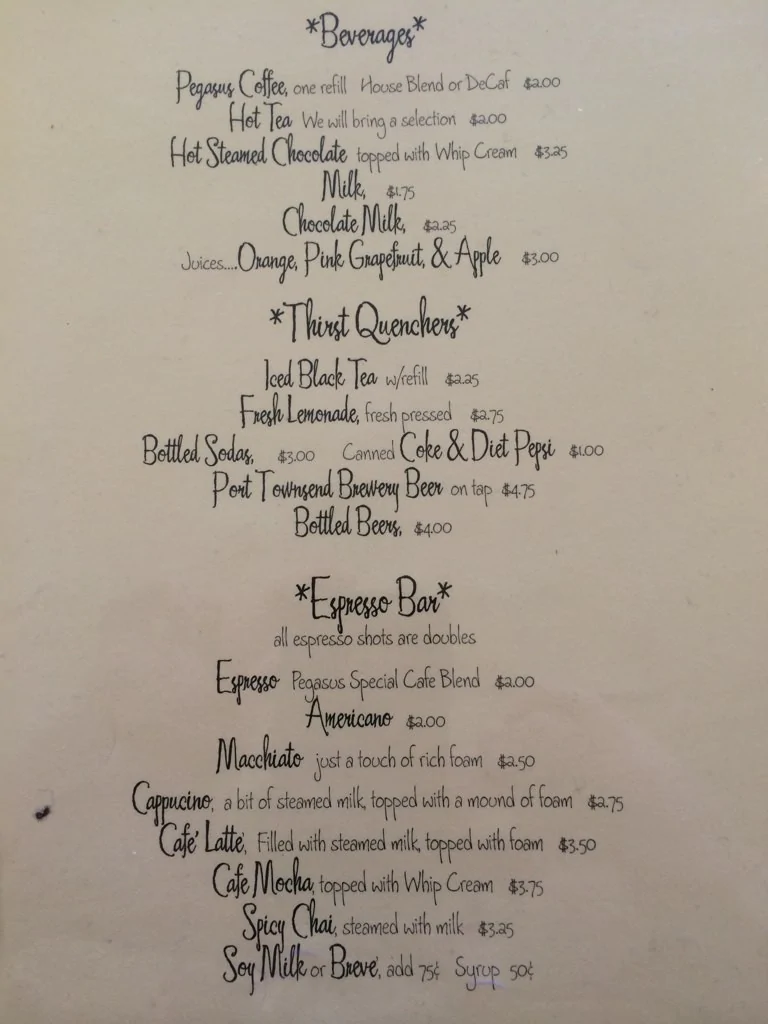 *Beverages*
Pegasus Coffee, one refill House Blend or DeCaf $2.00
Hot Tea We will bring a selection $2.00
Hot Steamed Chocolate topped with Whip Cream $3.25
Milk, $1.75
Chocolate Milk, $2.25
Juices....Orange, Pink Grapefruit, & Apple $3.00
*Thirst Quenchers*
Iced Black Tea w/refill $2.25
Fresh Lemonade, fresh pressed $2.75
Bottled Sodas, $3.00 Canned Coke & Diet Pepsi $1.00
Port Townsend Brewery Beer on tap $4.75
Bottled Beers, $4.00
*Espresso Bar*
all espresso shots are doubles
Espresso Pegasus Special Cafe Blend $2.00
Americano $2.00
Macchiato just a touch of rich foam $2.50
Cappucino, a bit of steamed milk, topped with a mound of foam $2.75
Cafe' Latte', Filled with steamed milk, topped with foam $3.50
Cafe Mocha, topped with Whip Cream $3.75
Spicy Chai, steamed with milk $3.25
Soy Milk or Breve', add 75¢ Syrup 50¢